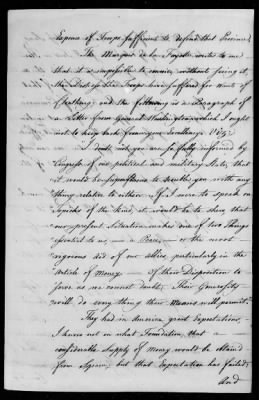 Expence of Troops sufficient to defend that Province.
The Marquis de la Fayette writes to me
that it is impossible to conceive, without seeing it,
the Distress the Troops have suffered for want of
Cloathing; and the following is a Paragraph of
a Letter from General Washington, which I ought
not to keep back from your Excellency. Viz:
I doubt not, you are so fully informed by
Congress of our political and military State, that
it would be superfluous to trouble you with any
thing relative to either. If I were to speak on
Topicks of the kind, it would be to shew that
our present Situation makes one of two Things
essential to us, — a Peace, — or the most
vigorous aid of our Allies, particularly in the
Article of Money. — Of their Disposition to
serve us we cannot doubt; Their Generosity
will do every thing their Means will permit.
They had in America great Expectations,
I know not on what Foundation, that a
considerable Supply of Money would be obtained
from Spain; but that Expectation has failed;
And